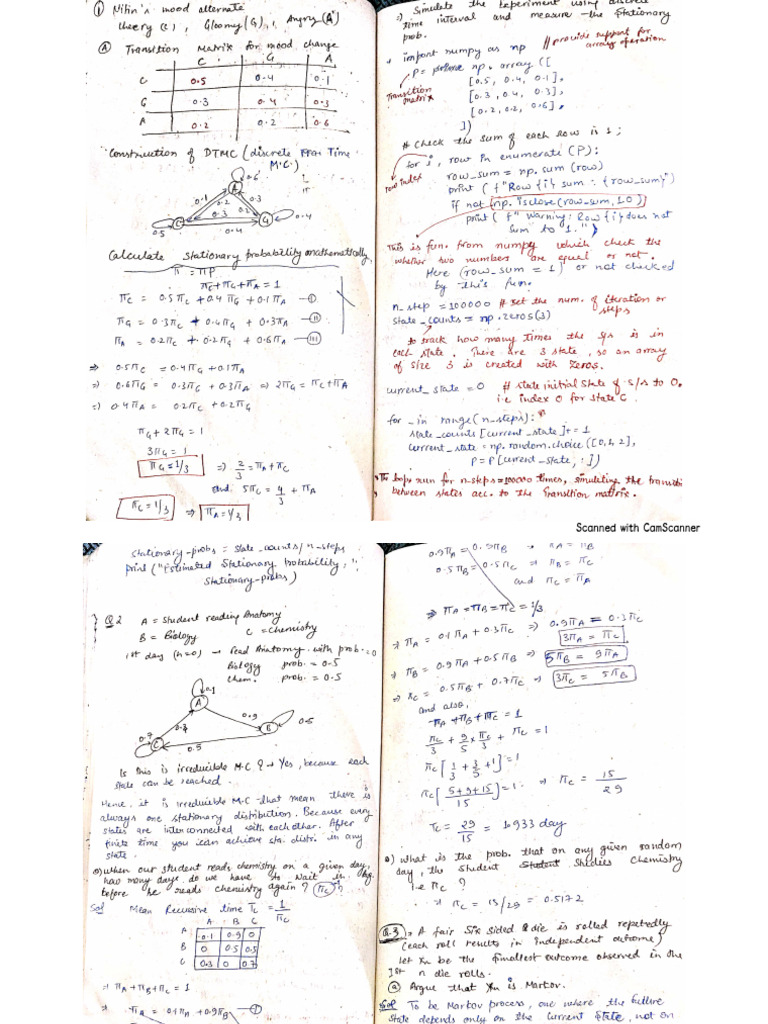 ① Nitin's mood alternate
cheery (C), Gloomy (G), Angry (A)
ⓐ Transition Matrix for mood change
C G A
C 0.5 0.4 0.1
G 0.3 0.4 0.3
A 0.2 0.2 0.6
Construction of DTMC (discrete Time
M.C.)
0.6
A
0.1 0.2 0.3
0.3 0.2
C G
0.5 0.4 0.4
Calculate stationary probability mathematically
π = πP
πC + πG + πA = 1
πC = 0.5πC + 0.4πG + 0.1πA — Ⓘ
πG = 0.3πC + 0.4πG + 0.3πA — ⓘⓘ
πA = 0.2πC + 0.2πG + 0.6πA — ⓘⓘⓘ
⇒ 0.5πC = 0.4πG + 0.1πA
⇒ 0.6πG = 0.3πC + 0.3πA ⇒ 2πG = πC + πA
⇒ 0.4πA = 0.2πC + 0.2πG
πG + 2πG = 1
3πG = 1
πG = 1/3 ⇒ 2/3 = πA + πC
and 5πC = 4/3 + πA
πC = 1/3 ⇒ πA = 1/3
Simulate the Experiment using discrete
time interval and measure the stationary
prob.
import numpy as np // provide support for
array operation
P = np.array ([
[0.5, 0.4, 0.1],
[0.3, 0.4, 0.3],
[0.2, 0.2, 0.6],
])
Transition
matrix
# Check the sum of each row is 1;
for i, row in enumerate (P):
row index
row_sum = np.sum (row)
print (f"Row {i} sum : {row_sum}")
if not np.isclose(row_sum, 1.0)
print (f" Warning: Row {i} does not
sum to 1.")
This is fun. from numpy which check the
whether two numbers are equal or not.
Here (row_sum = 1) or not checked
by this fun.
n_step = 100000 # set the num. of iteration or
steps
state_counts = np.zeros(3)
to track how many times the sys is in
each state. There are 3 state, so an array
of size 3 is created with zeros.
current_state = 0 # state initial state of s/s to 0.
i.e index 0 for state C.
for _ in range(n_steps):
state_counts [current_state] += 1
current_state = np.random.choice ([0,1,2],
P = P[current_state, :])
The loops run for n-steps = 100000 times, simulating the transiti
between states acc. to the Transition matrix.
Scanned with CamScanner
stationary-probs = state_counts / n_steps
print ("Estimated Stationary Probability,",
stationary-probs)
Q2 A = Student reading Anatomy
B = Biology C = Chemistry
1st day (n=0) → read Anatomy with prob. = 0
Biology prob. = 0.5
chem. prob. = 0.5
0.1
A
0.3 0.9
0.7 B 0.5
C 0.5
Is this is irreducible M.C? → Yes, because each
state can be reached.
Hence, it is irreducible M.C that mean there is
always one stationary distribution. Because every
states are interconnected with each other. After
finite time you can achieve sta. distri. in any
state.
when our student reads chemistry on a given day,
how many days do we have to wait in Avg.
before he reads chemistry again? (πC)?
Sol Mean Recursive time TC = 1/πC
A B C
A 0.1 0.9 0
B 0 0.5 0.5
C 0.3 0 0.7
⇒ πA + πB + πC = 1
⇒ πA = 0.1πA + 0.9πB — Ⓘ
0.9πA = 0.9πB ⇒ πA = πB
0.5πB = 0.5πC ⇒ πB = πC
and πC = πA
⇒ πA = πB = πC = 1/3
⇒ πA = 0.1πA + 0.3πC ⇒ 0.9πA = 0.3πC
3πA = πC
⇒ πB = 0.9πA + 0.5πB ⇒ 5πB = 9πA
⇒ πC = 0.5πB + 0.7πC ⇒ 3πC = 5πB
and also,
πA + πB + πC = 1
πC/3 + 9/5 × πC/3 + πC = 1
πC [1/3 + 3/5 + 1] = 1
πC [(5+9+15)/15] = 1 ⇒ πC = 15/29
TC = 29/15 = 1.933 day
what is the prob. that on any given random
day, the student Studies Chemistry
i.e πC ?
⇒ πC = 15/29 = 0.5172
Q.3 A fair Six sided die is rolled repeatedly
(each roll results in Independent outcome)
Let Xn be the smallest outcome observed in the
1st n die rolls.
ⓐ Argue that Xn is Markov.
Sol To be Markov process, one where the future
state depends only on the current state, not on